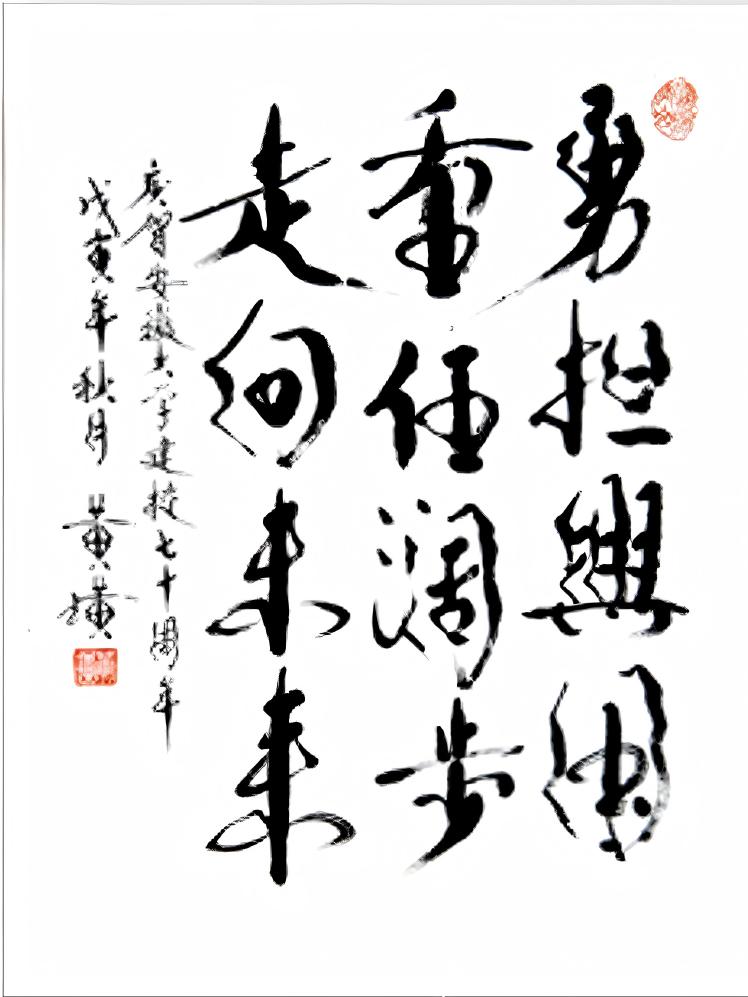 勇担興国
重任阔步
走向未来
庆賀安徽大学建校七十周年
戊寅年秋月 黄璜